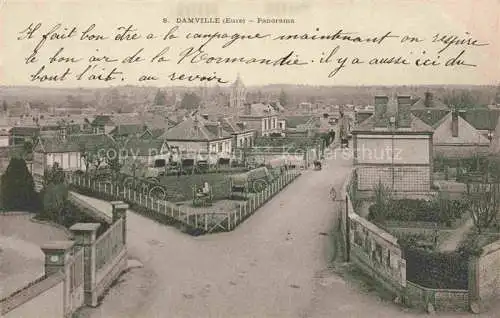 8. DAMVILLE (Eure) - Panorama
Il fait bon être à la campagne maintenant on respire
le bon air de la Normandie. il y a aussi ici du
bout l'art. au revoir
postcards
postcards
postcards